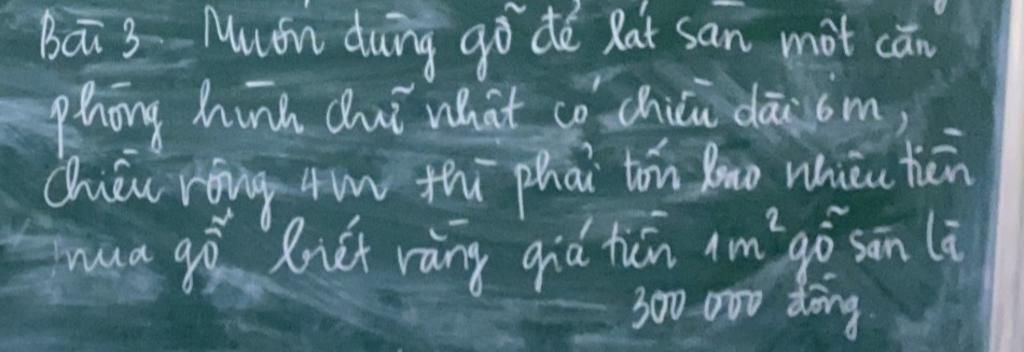 Bài 3. Muốn dùng gỗ để lát sàn một căn
phòng hình chữ nhật có chiều dài 6m,
chiều rộng 4m thì phải tốn bao nhiêu tiền
mua gỗ biết rằng giá tiền 1m² gỗ sàn là
300 000 đồng.